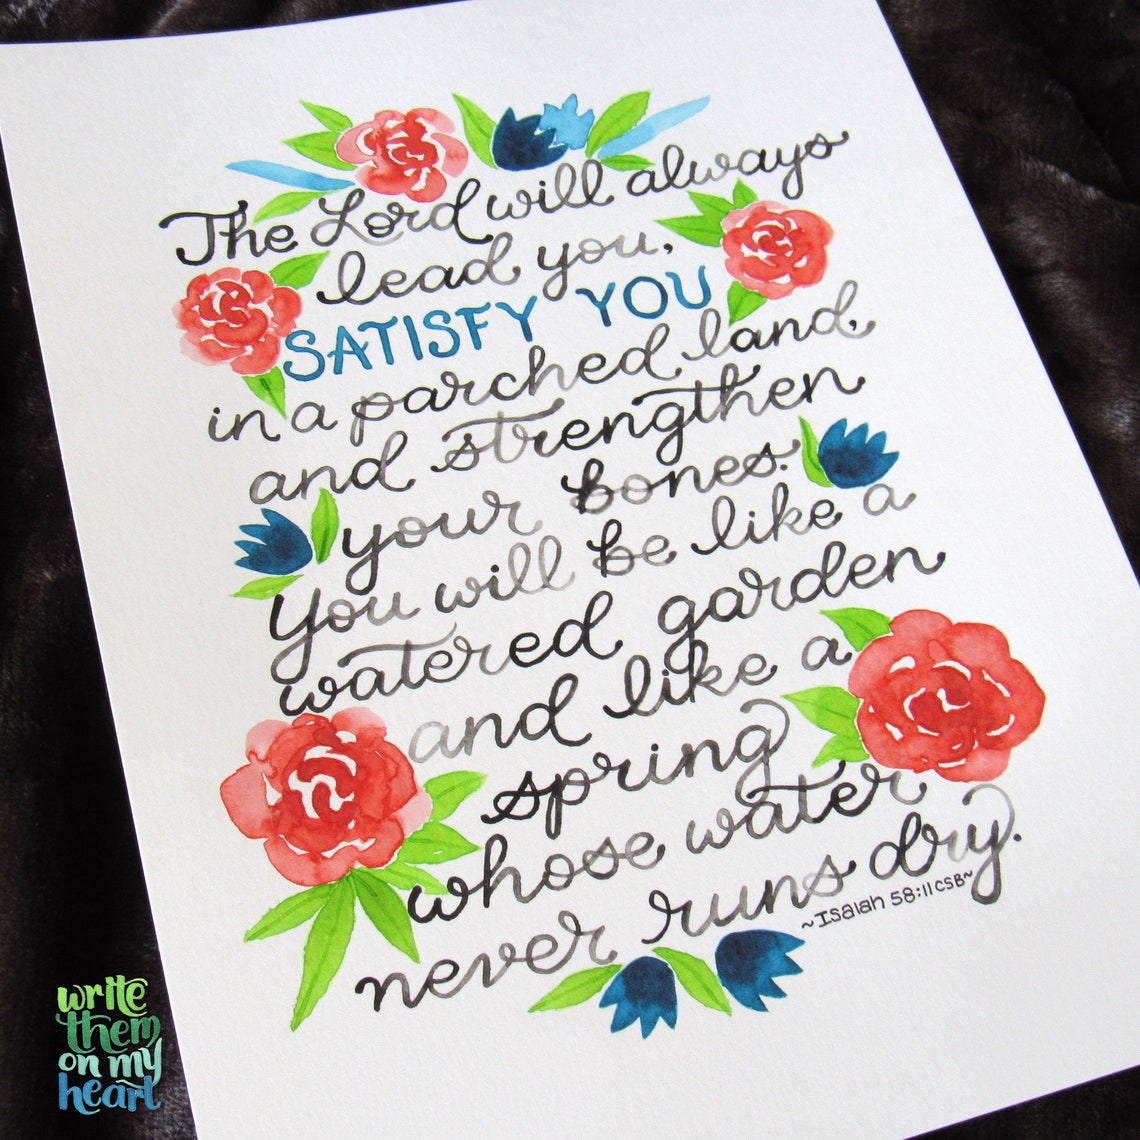 The Lord will always
lead you,
SATISFY YOU
in a parched land,
and strengthen
your bones.
You will be like a
watered garden
and like a
spring
whose water
never runs dry.
~Isaiah 58:11 CSB~
write
them
on my
heart